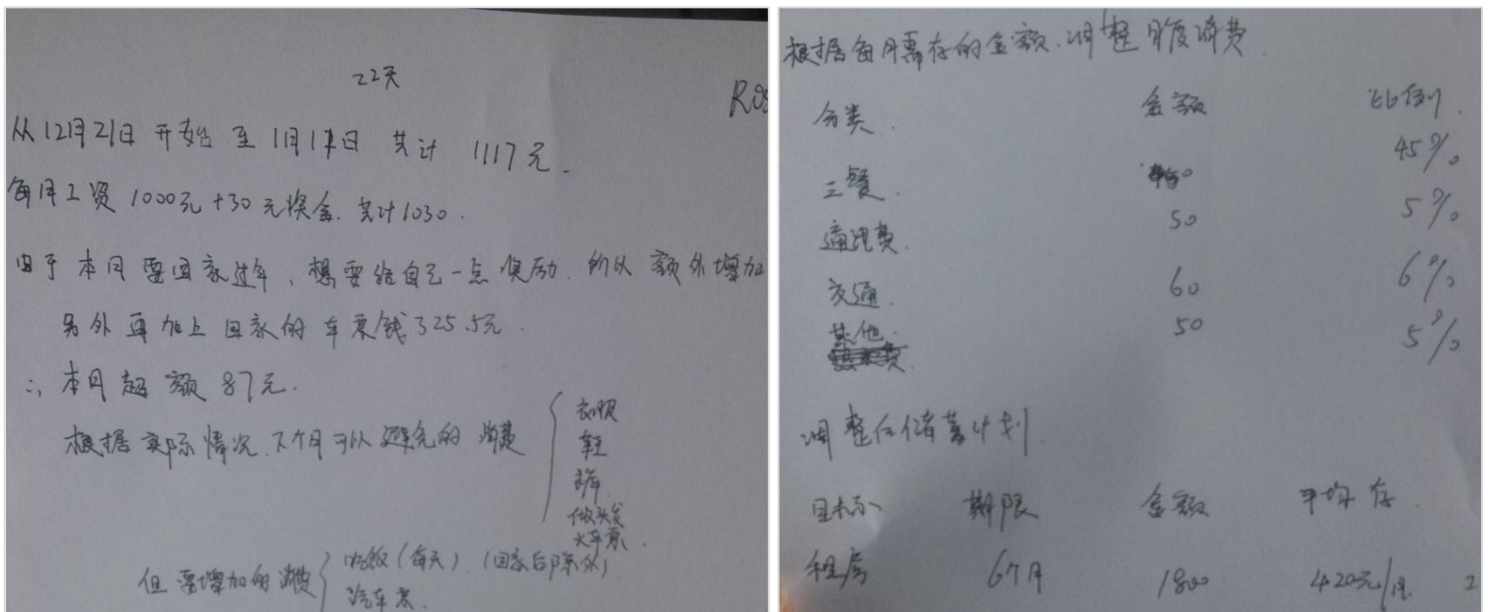 22天
从12月21日 开始 至 1月11日 共计 1117元.
每月工资 1000元+30元奖金. 共计1030.
由于 本月 要回家过年, 想要给自己一点 奖励. 所以 额外增加
另外再加上 回家的 车票钱325.5元.
∴ 本月超额 87元.
根据 实际情况. 下个月可以避免的 消费
衣服
鞋
做头发
火车票.
但要增加的消费
吃饭(每天) (回家后除外)
汽车票.
根据每月需存的金额. 调整月度消费.
分类. 金额 比例.
三餐. 45%
通讯费. 50 5%
交通. 60 6%
其他. 50 5%
调整后储蓄计划.
目标 期限 金额 平均存.
租房 6个月 1800 420元/月.